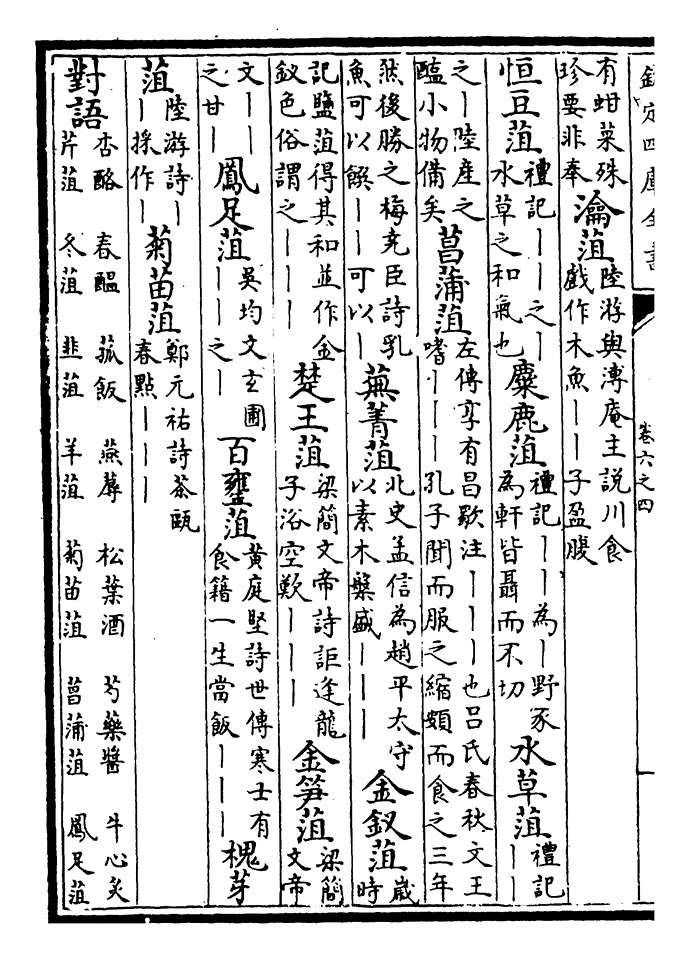 欽定四庫全書 卷六之四
有蚶菜殊珍要非奉瀹菹陸游與漙庵主說川食戲作木魚丨丨子盈腹
恒豆菹禮記丨丨之丨水草之和氣也麋鹿菹禮記丨丨為丨野豕為軒皆聶而不切水草菹禮記丨丨
之丨陸產之醢小物備矣菖蒲菹左傳享有昌歜注丨丨丨也吕氏春秋文王嗜丨丨丨孔子聞而服之縮頞而食之三年
然後勝之梅堯臣詩乳魚可以饌丨丨可以丨蕪菁菹北史孟信為趙平太守以素木盤盛丨丨丨金釵菹嵗時
記鹽菹得其和並作金釵色俗謂之丨丨丨楚王菹梁簡文帝詩詎逢龍子浴空歎丨丨丨金笋菹梁簡文帝
文丨丨之甘丨鳳足菹吳均文玄圃丨丨之丨百壅菹黄庭堅詩世傳寒士有食籍一生當飯丨丨丨槐芽
菹陸游詩丨丨採作丨菊苗菹鄭元祐詩茶甌春點丨丨丨
對語 杏酪 春醖 菰飯 燕蓐 松葉酒 芍藥醬 牛心炙 芹菹 冬菹 韭菹 羊菹 菊苗菹 菖蒲菹 鳳足菹